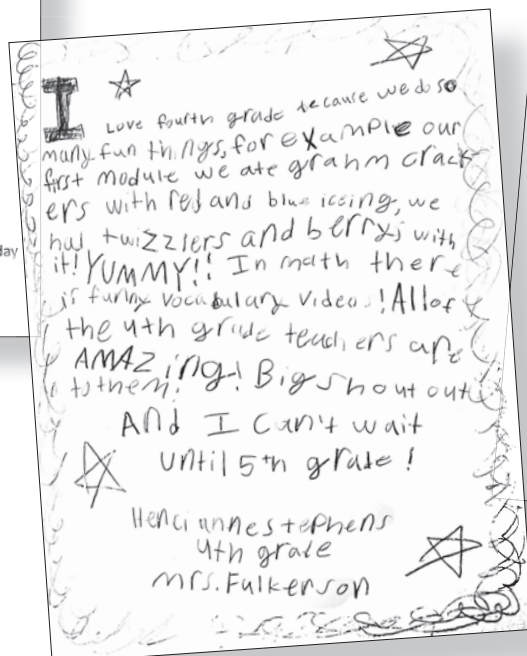 day
I Love fourth grade because we do so
many fun things, for example our
first module we ate grahm crack
ers with red and blue iccing, we
had twizzlers and berrys with
it! YUMMY!! In math there
is funny vocabulary videos! All of
the 4th grade teachers are
AMAZing! Big shout out
to them!
And I can't wait
until 5th grade!
Henci anne stephens
4th grade
mrs. Fulkerson